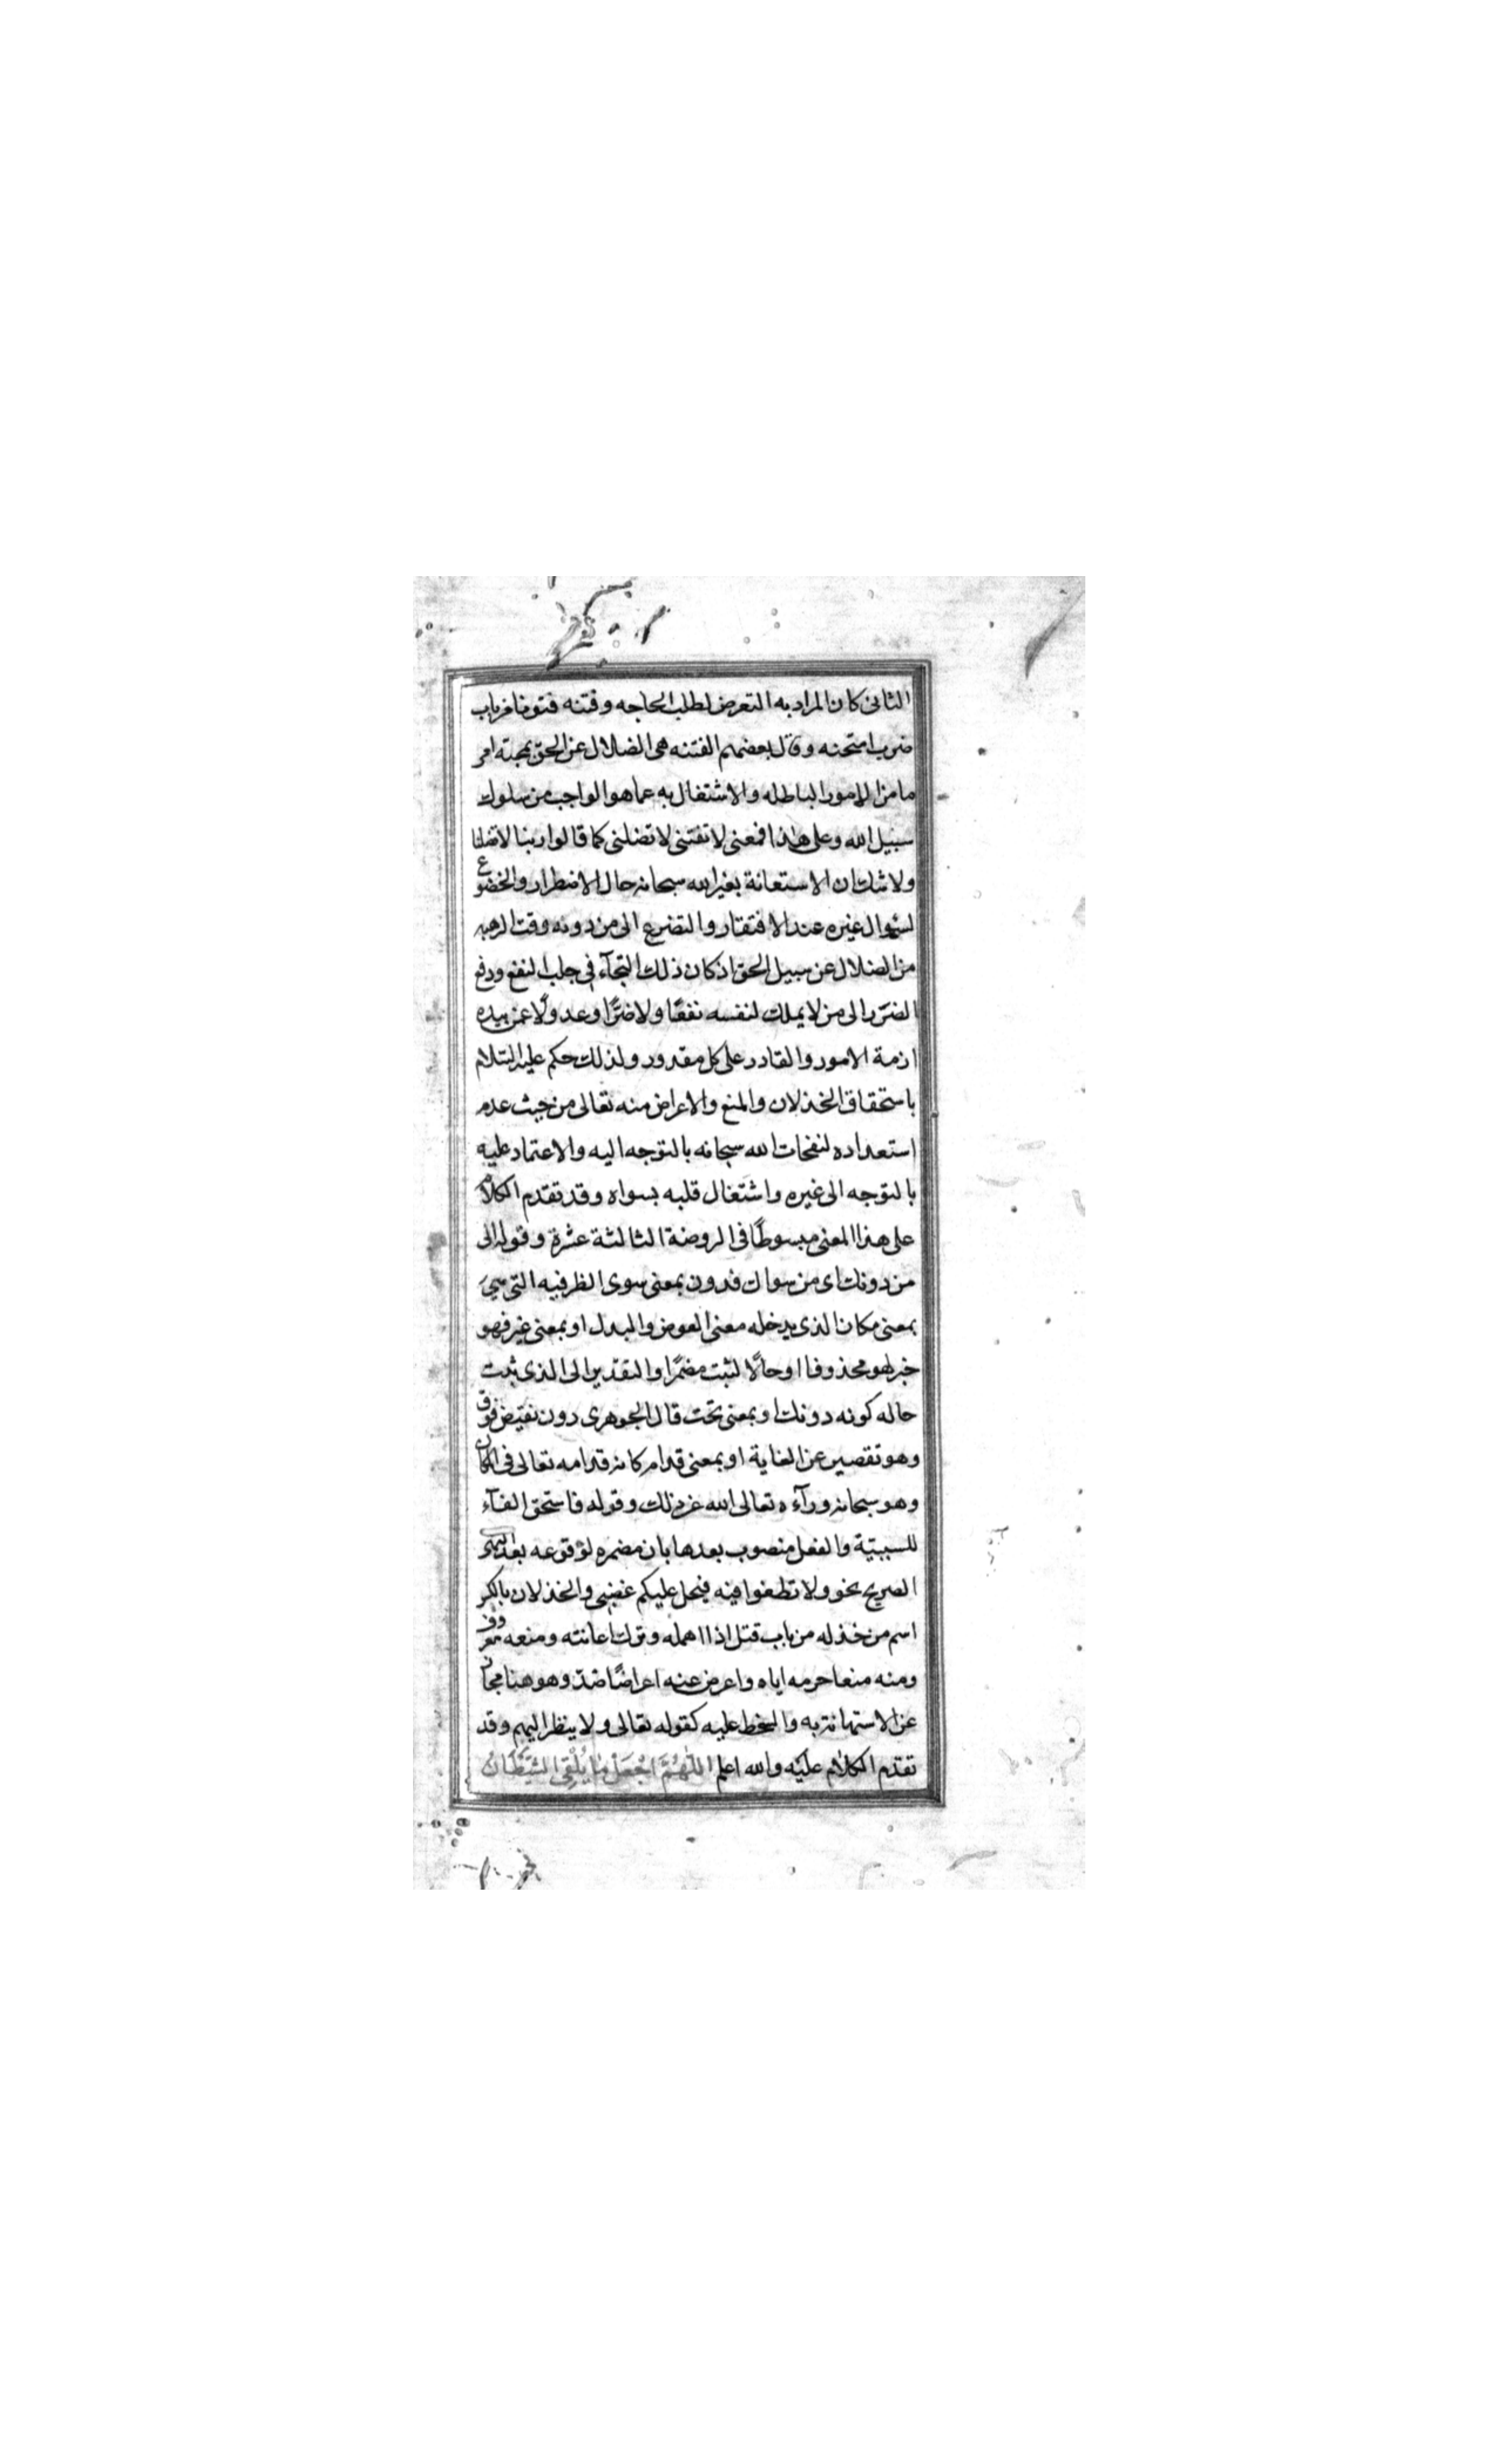 الثانى كان المراد به التعرض لطلب الحاجه وفتنه فتونا من باب
ضرب امتحنه وقال بعضهم الفتنه هى الضلال عن الحق بمحبة امر
ما من الامور الباطله والاشتغال به عما هو الواجب من سلوك
سبيل الله وعلى هذا فمعنى لا تفتنى لا تضلنى كما قالوا ربنا لا تضلنا
ولا شك ان الاستعانة بغير الله سبحانه حال الاضطرار والخضوع
لسؤال غيره عند الافتقار والتضرع الى من دونه وقت الرهبه
من الضلال عن سبيل الحق اذ كان ذلك التجآء فى جلب النفع ودفع
الضرر الى من لا يملك لنفسه نفعًا ولا ضرًا وعدولًا عمن بيده
ازمة الامور والقادر على كل مقدور ولذلك حكم عليه السلام
باستحقاق الخذلان والمنع والاعراض منه تعالى من حيث عدم
استعداده لنفحات الله سبحانه بالتوجه اليه والاعتماد عليه
بالتوجه الى غيره واشتغال قلبه بسواه وقد تقدم الكلام
على هذا المعنى مبسوطًا فى الروضة الثالثة عشرة وقوله الى
من دونك اى من سواك فدون بمعنى سوى الظرفيه التى هى
بمعنى مكان الذى يدخله معنى العوض والبدل او بمعنى غير فهو
خبر لهو محذوفا او حالًا لثبت مضمرًا والتقدير الى الذى ثبت
حاله كونه دونك او بمعنى تحت قال الجوهرى دون نقيض فوق
وهو تقصير عن الغاية او بمعنى قدام كانه قدامه تعالى فى المكان
وهو سبحانه ورآءه تعالى الله عن ذلك وقوله فاستحق الفآء
للسببية والفعل منصوب بعدها بان مضمره لوقوعه بعد النهى
الصريح نحو ولا تطغوا فيه فيحل عليكم غضبى والخذلان بالكسر
اسم من خذله من باب قتل اذا اهمله وترك اعانته ومنعه معروف
ومنه منعا حرمه اياه واعرض عنه اعراضًا صد وهو هنا مجاز
عن الاستهانة به والسخط عليه كقوله تعالى ولا ينظر اليهم وقد
تقدم الكلام عليه والله اعلم اللّٰهُمَّ اجْعَلْ مَا يُلْقِى الشَّيْطَانُ